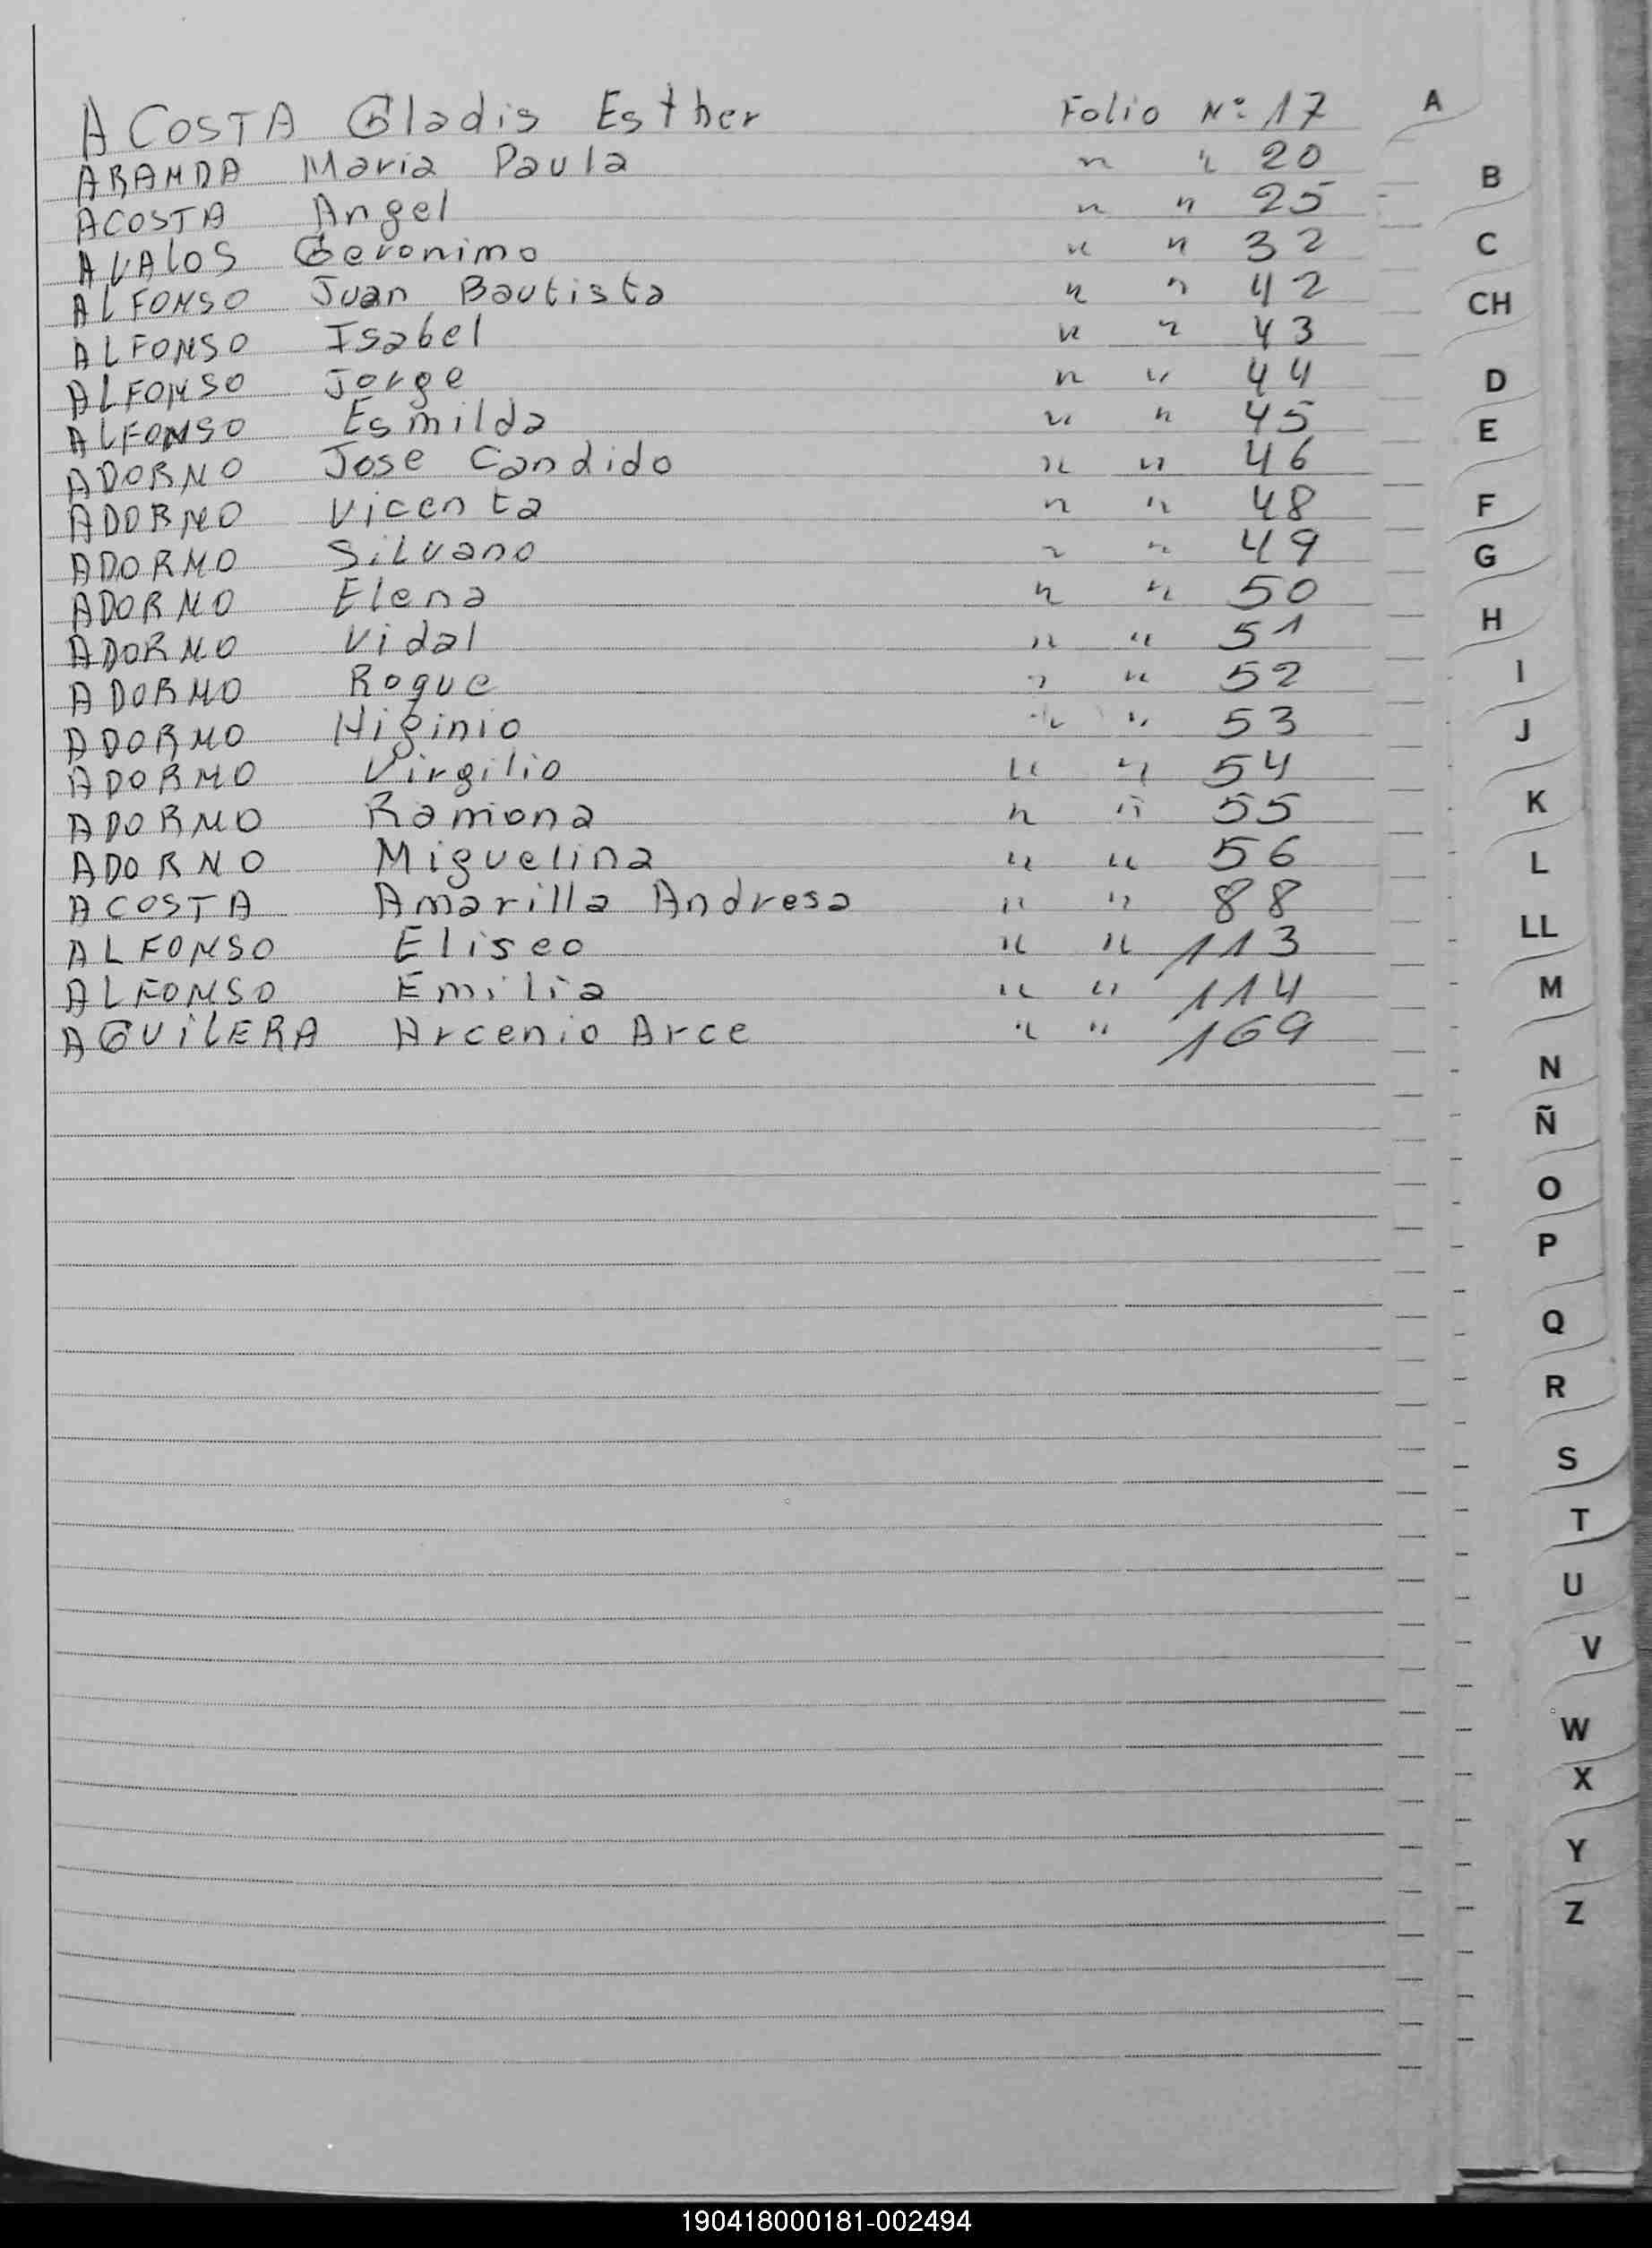 ACOSTA Gladis Esther Folio N: 17
ARANDA Maria Paula " " 20
ACOSTA Angel " " 25
AVALOS Geronimo " " 32
ALFONSO Juan Bautista " " 42
ALFONSO Isabel " " 43
ALFONSO Jorge " " 44
ALFONSO Esmilda " " 45
ADORNO Jose Candido " " 46
ADORNO Vicenta " " 48
ADORNO Silvano " " 49
ADORNO Elena " " 50
ADORNO Vidal " " 51
ADORNO Roque " " 52
ADORNO Higinio " " 53
ADORNO Virgilio " " 54
ADORNO Ramona " " 55
ADORNO Miguelina " " 56
ACOSTA Amarilla Andresa " " 88
ALFONSO Eliseo " " 113
ALFONSO Emilia " " 114
AGUILERA Arcenio Arce " " 169
A
B
C
CH
D
E
F
G
H
I
J
K
L
LL
M
N
Ñ
O
P
Q
R
S
T
U
V
W
X
Y
Z
190418000181-002494